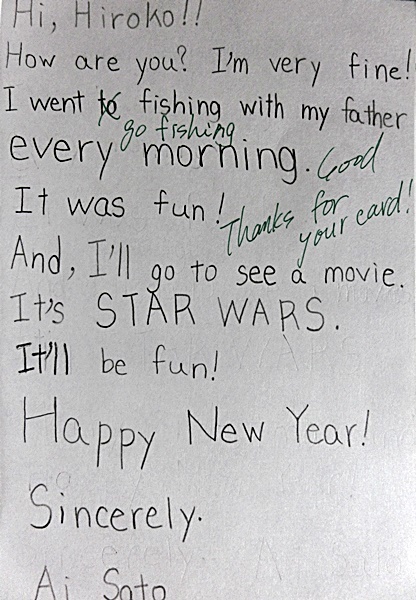 Hi, Hiroko!!
How are you? I'm very fine!
I went to fishing with my father
go fishing
every morning. Good
It was fun! Thanks for
your card!
And, I'll go to see a movie.
It's STAR WARS.
It'll be fun!
Happy New Year!
Sincerely.
Ai Sato